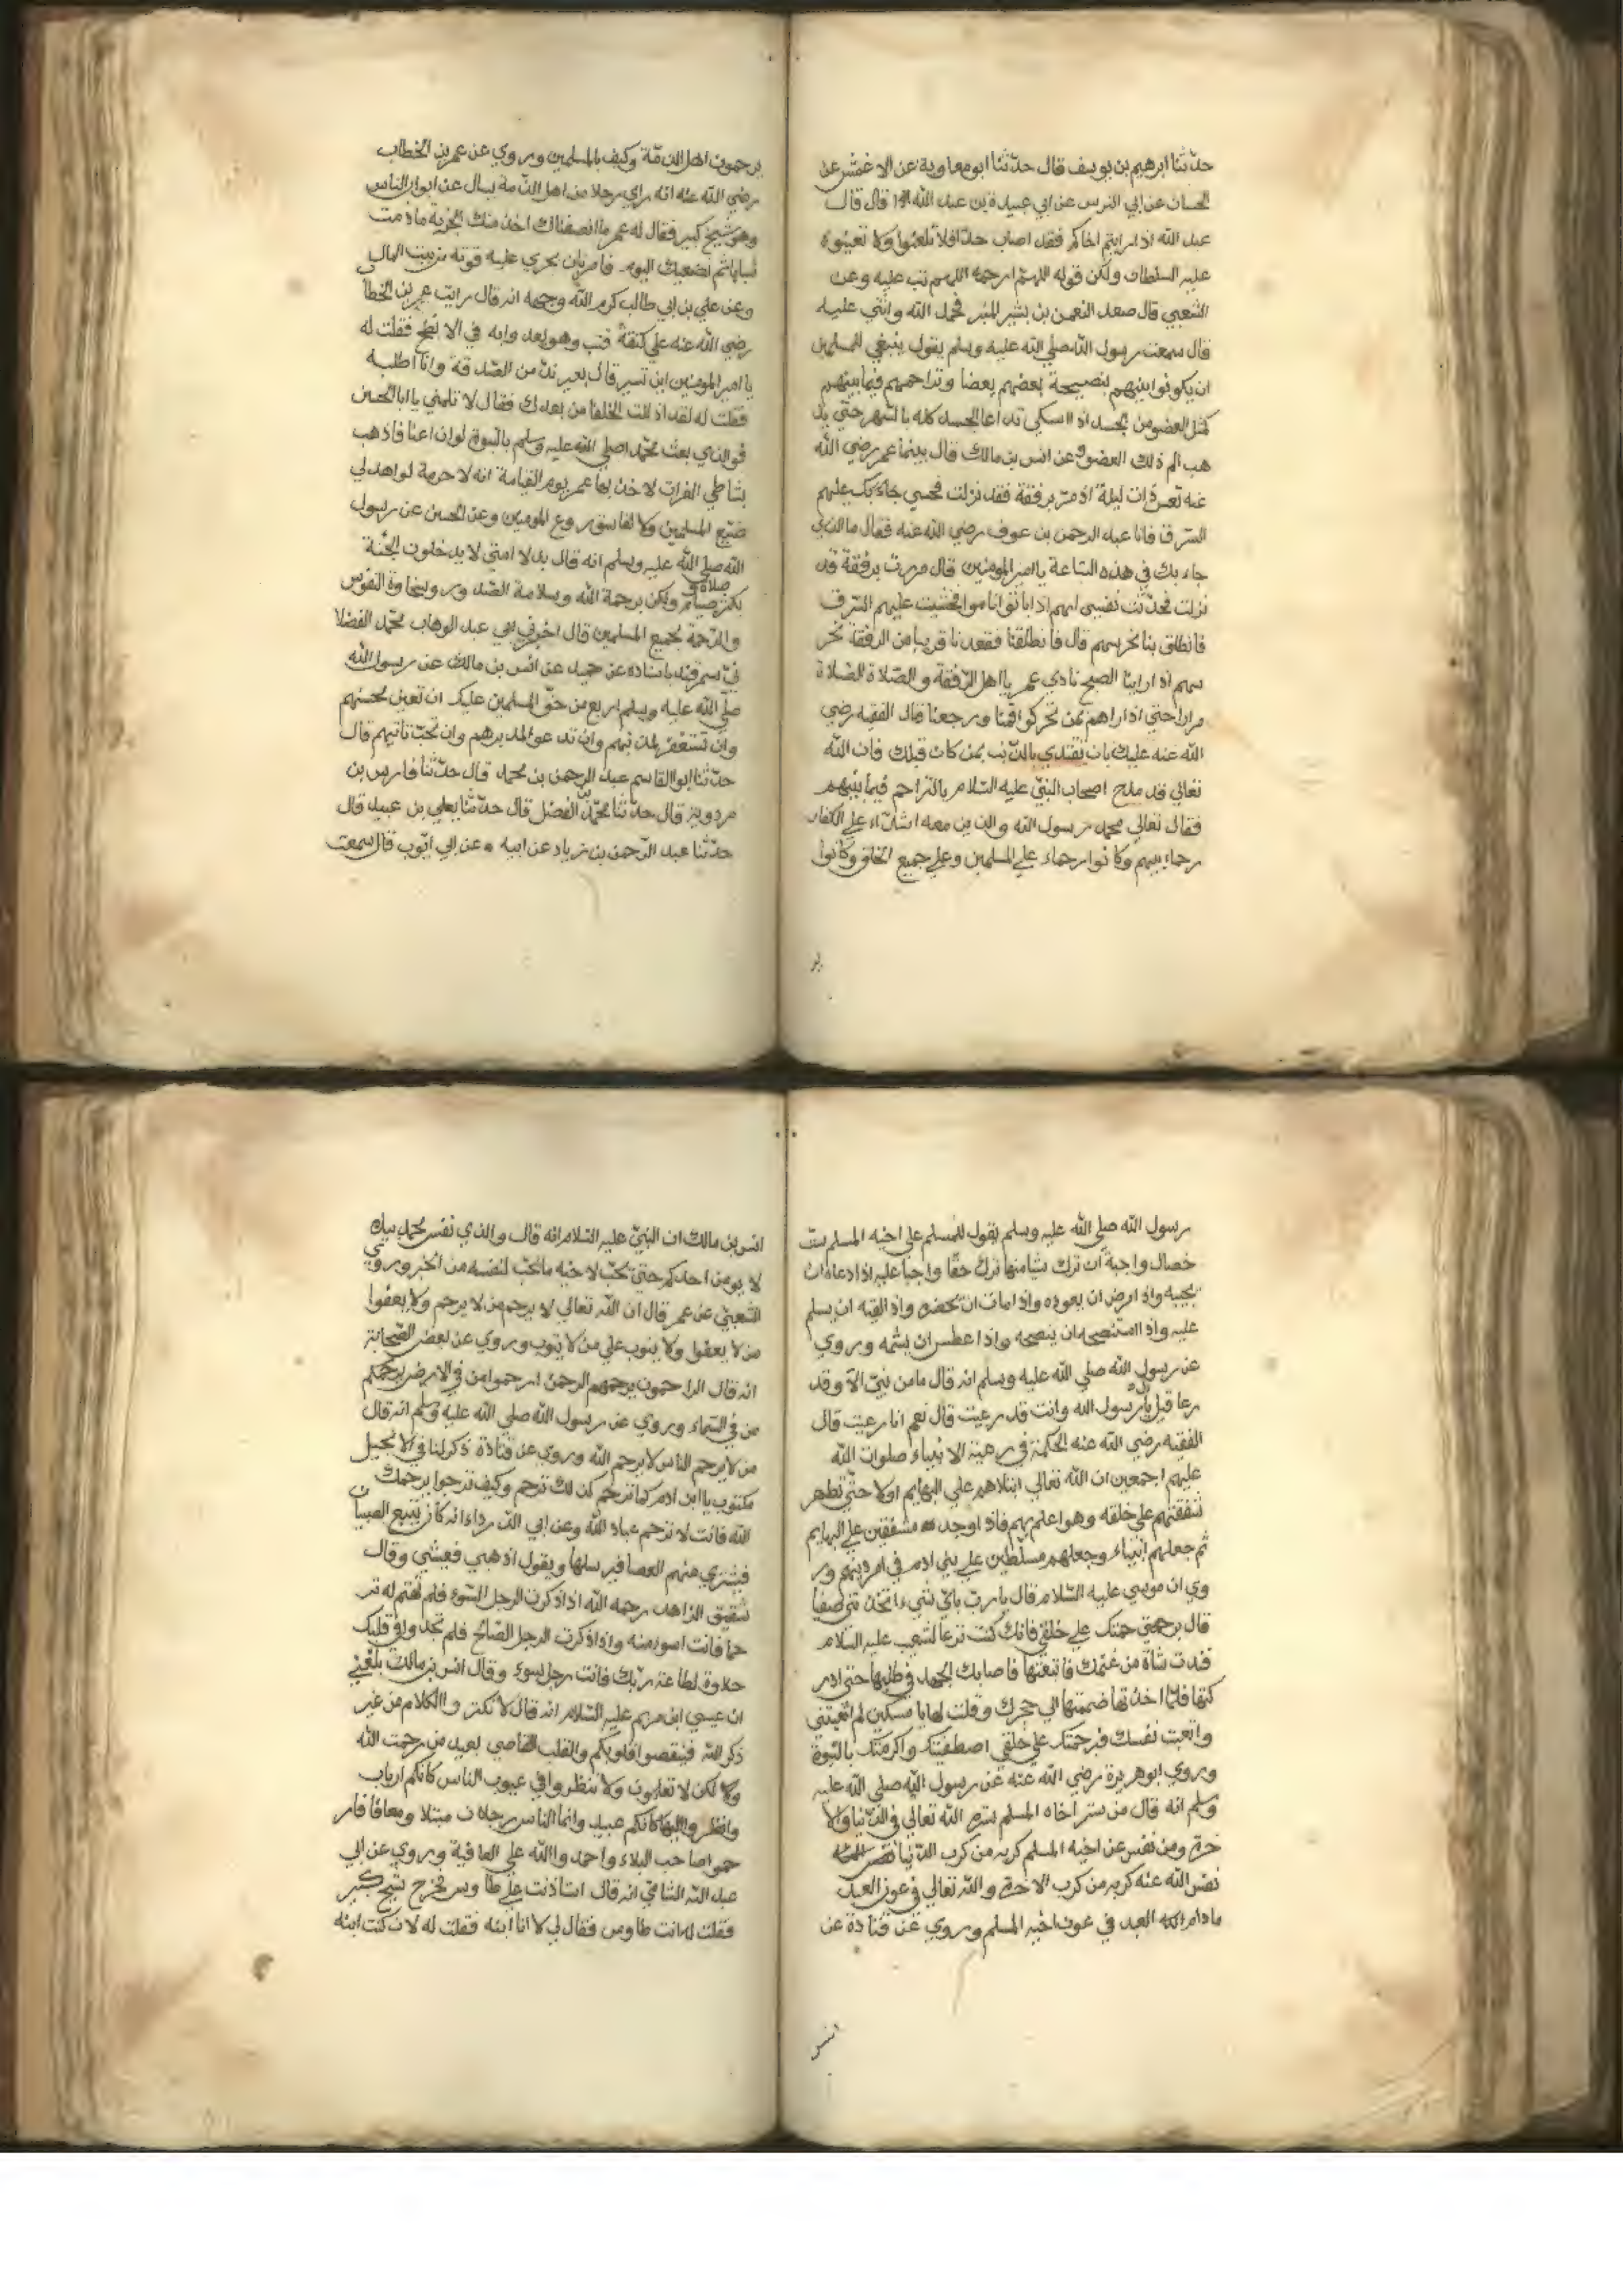 حدثنا ابرهيم بن يوسف قال حدثنا ابو معاوية عن الاعمش عن
عن ابي عبيدة بن عبد الله قال قال
عبد الله اذا رايتم اخاكم فقد اصاب حدا فلا تلعنوا ولا تعينوه
عليه السلطان ولكن قولو اللهم ارحمه اللهم تب عليه وعن
الشعبي قال صعد النعمن بن بشير المنبر فحمد الله واثني عليه
قال سمعت رسول الله صلي الله عليه وسلم يقول ينبغي للمسلمين
ان يكونوا بينهم بنصيحة بعضهم بعضا وتراحمهم فيما بينهم
كمثل العضو من الجسد اذا اشتكي تداعا الجسد كله بالسهر حتي يذ
هب الم ذلك العضو وعن انس بن مالك قال بينما عمر رضي الله
عنه تعس ذات ليلة اذ مر برفقة فقد نزلت فخشي عليهم
السرق فانا عبد الرحمن بن عوف رضي الله عنه فقال ما الذي
جاء بك في هذه الساعة يا امير المومنين قال مررت برفقة قد
نزلت فحدثت نفسي انهم اذا باتوا ناموا فخشيت عليهم السرق
فانطلق بنا نحرسهم قال فانطلقنا فقعدنا قريبا من الرفقة نحر
سهم اذا راينا الصبح نادي عمر يا اهل الرفقة والصلاة الصلاة
مرارا حتي اذا راهم تحركوا قمنا ورجعنا قال الفقيه رضي
الله عنه عليك بان تقتدي بالذين من كان قبلك فان الله
تعالي قد مدح اصحاب النبي عليه السلام بالتراحم فيما بينهم
فقال تعالي محمد رسول الله والذين معه اشداء علي الكفار
رحماء بينهم وكانوا رحماء علي المسلمين وعلي جميع الخلق وكانوا
ير
يرحمون اهل الذمة وكيف بالمسلمين وروي عن عمر بن الخطاب
رضي الله عنه انه راي رجلا من اهل الذمة يسال عن ابواب الناس
وهو شيخ كبير فقال له عمر ما انصفناك اخذ منك الجزية ماذمت
شابا ثم نضعيك اليوم فامر بان يجري عليه قوته من بيت المال
وعن علي بن ابي طالب كرم الله وجهه انه قال رايت عمر بن الخطا
رضي الله عنه علي كتفه قتب وهو يعد وابه في الابطح فقلت له
يا امير المومنين اين تسير قال بعير ند من الصدقة وانا اطلبه
فقلت له لقد اذللت الخلفا من بعدك فقال لا تلمني يا ابا الحسن
فو الذي بعث محمدا صلي الله عليه وسلم بالنبوة لو ان اعنا قا ذهب
بشاطي الفرات لاخذ بها عمر يوم القيامة انه لا حرمة لواهد لي
ضيع المسلمين ولا لفاسق روع المومنين وعن الحسن عن رسول
الله صلي الله عليه وسلم انه قال بدلا امتي لا يدخلون الجنة
بكثر صلاة و صيام ولكن برحمة الله وسلامة الصدور وسخاوة النفوس
والرحمة لجميع المسلمين قال اخبرني ابي عبد الوهاب محمد الفضلا
في سمرقند باسناده عن حميد عن انس بن مالك عن رسول الله
صلي الله عليه وسلم اربع من حق المسلمين عليك ان تعين محسنهم
وان تستغفر لمذنبهم وان تدعوا لمدبرهم وان تحب تائبهم قال
حدثنا ابو القاسم عبد الرحمن بن محمد قال حدثنا فارس بن
مردويه قال حدثنا محمد بن الفضل قال حدثنا يعلي بن عبيد قال
حدثنا عبد الرحمن بن زياد عن ابيه عن ابي ايوب قال سمعت
رسول الله صلي الله عليه وسلم يقول للمسلم علي اخيه المسلم ست
خصال واجبة ان ترك شيا منها ترك حقا واجبا عليه اذا دعاه ان
يجيبه واذا مرض ان يعوده واذا مات ان يحضره واذا لقيه ان يسلم
عليه واذا استنصحه ان ينصحه واذا عطس ان يشمته وروي
عن رسول الله صلي الله عليه وسلم انه قال ما من نبي الا وقد
رعا قيل يا رسول الله وانت قد رعيت قال نعم انا رعيت قال
الفقيه رضي الله عنه الحكمة في رعية الانبياء صلوات الله
عليهم اجمعين ان الله تعالي ابتلاهم علي البهايم اولا حتي تظهر
شفقتهم علي خلقه وهو اعلم بهم فاذا وجد مشفقين علي البهايم
ثم جعلهم انبياء وجعلهم مسلطين علي بني ادم في امر دينهم ور
وي ان موسي عليه السلام قال يا رب باي شيء اتخذتني صفيا
قال برحمتك علي خلقي فانك كنت ترعا لشعيب عليه السلام
فندت شاة من غنمك فاتبعتها فاصابك الجهد في طلبها حتي ادر
كتها فلما اخذتها ضممتها الي حجرك وقلت لها يا مسكين لم اتعبتني
واتعبت نفسك فبرحمتك علي خلقي اصطفيتك واكرمتك بالنبوة
وروي ابو هريرة رضي الله عنه عن رسول الله صلي الله عليه
وسلم انه قال من ستر اخاه المسلم ستره الله تعالي في الدنيا والا
خرة ومن نفس عن اخيه المسلم كربه من كرب الدنيا
نفس الله عنه كربه من كرب الاخرة والله تعالي في عون العبد
مادام العبد في عون اخيه المسلم وروي عن قتادة عن
انس
انس بن مالك ان النبي عليه السلام انه قال والذي نفس محمد بيك
لا يومن احدكم حتي يحب لاخيه ما يحب لنفسه من الخير وروي
الشعبي عن عمر قال ان الله تعالي لا يرحم من لا يرحم ولا يعفوا
من لا يعفوا ولا يتوب علي من لا يتوب وروي عن بعض الصحابة
انه قال الراحمون يرحمهم الرحمن ارحموا من في الارض يرحمكم
من في السماء وروي عن رسول الله صلي الله عليه وسلم انه قال
من لا يرحم الناس لا يرحم الله وروي عن قتادة ذكر لنا في الانجيل
مكتوب يا ابن ادم كما ترحم كذلك ترحم وكيف ترجوا يرحمك
الله فانت لا ترحم عباد الله وعن ابي الدرداء انه كان يتبع الصبيان
فيشتري منهم العصا فير سلها ويقول اذهبي فعيشي وقال
شقيق الزاهد رحمه الله اذا ذكرت الرجل السوء فلم تهتم له تر
حما فانت اسو منه واذا ذكرت الرجل الصالح فلم تجد في قلبك
حلاوة لطاعة ربك فانت رجل سوء وقال انس بن مالك بلغني
ان عيسي ابن مريم عليه السلام انه قال لا تكثروا الكلام من غير
ذكر الله فينقصوا قلوبكم والقلب القاصي بعيد من رحمت الله
ولا لكن لا تعلمون ولا تنظروا في عيوب الناس كانكم ارباب
وانظروا اليها كانكم عبيد وانما الناس رجلان مبتلا ومعافا فار
حموا صاحب البلاء واحمدوا الله علي العافية وروي عن ابي
عبد الله الشامي انه قال استاذنت علي طاوس فخرج شيخ كبير
فقلت له انت طاوس فقال لي لا انا ابنه فقلت له لان كنت ابنه